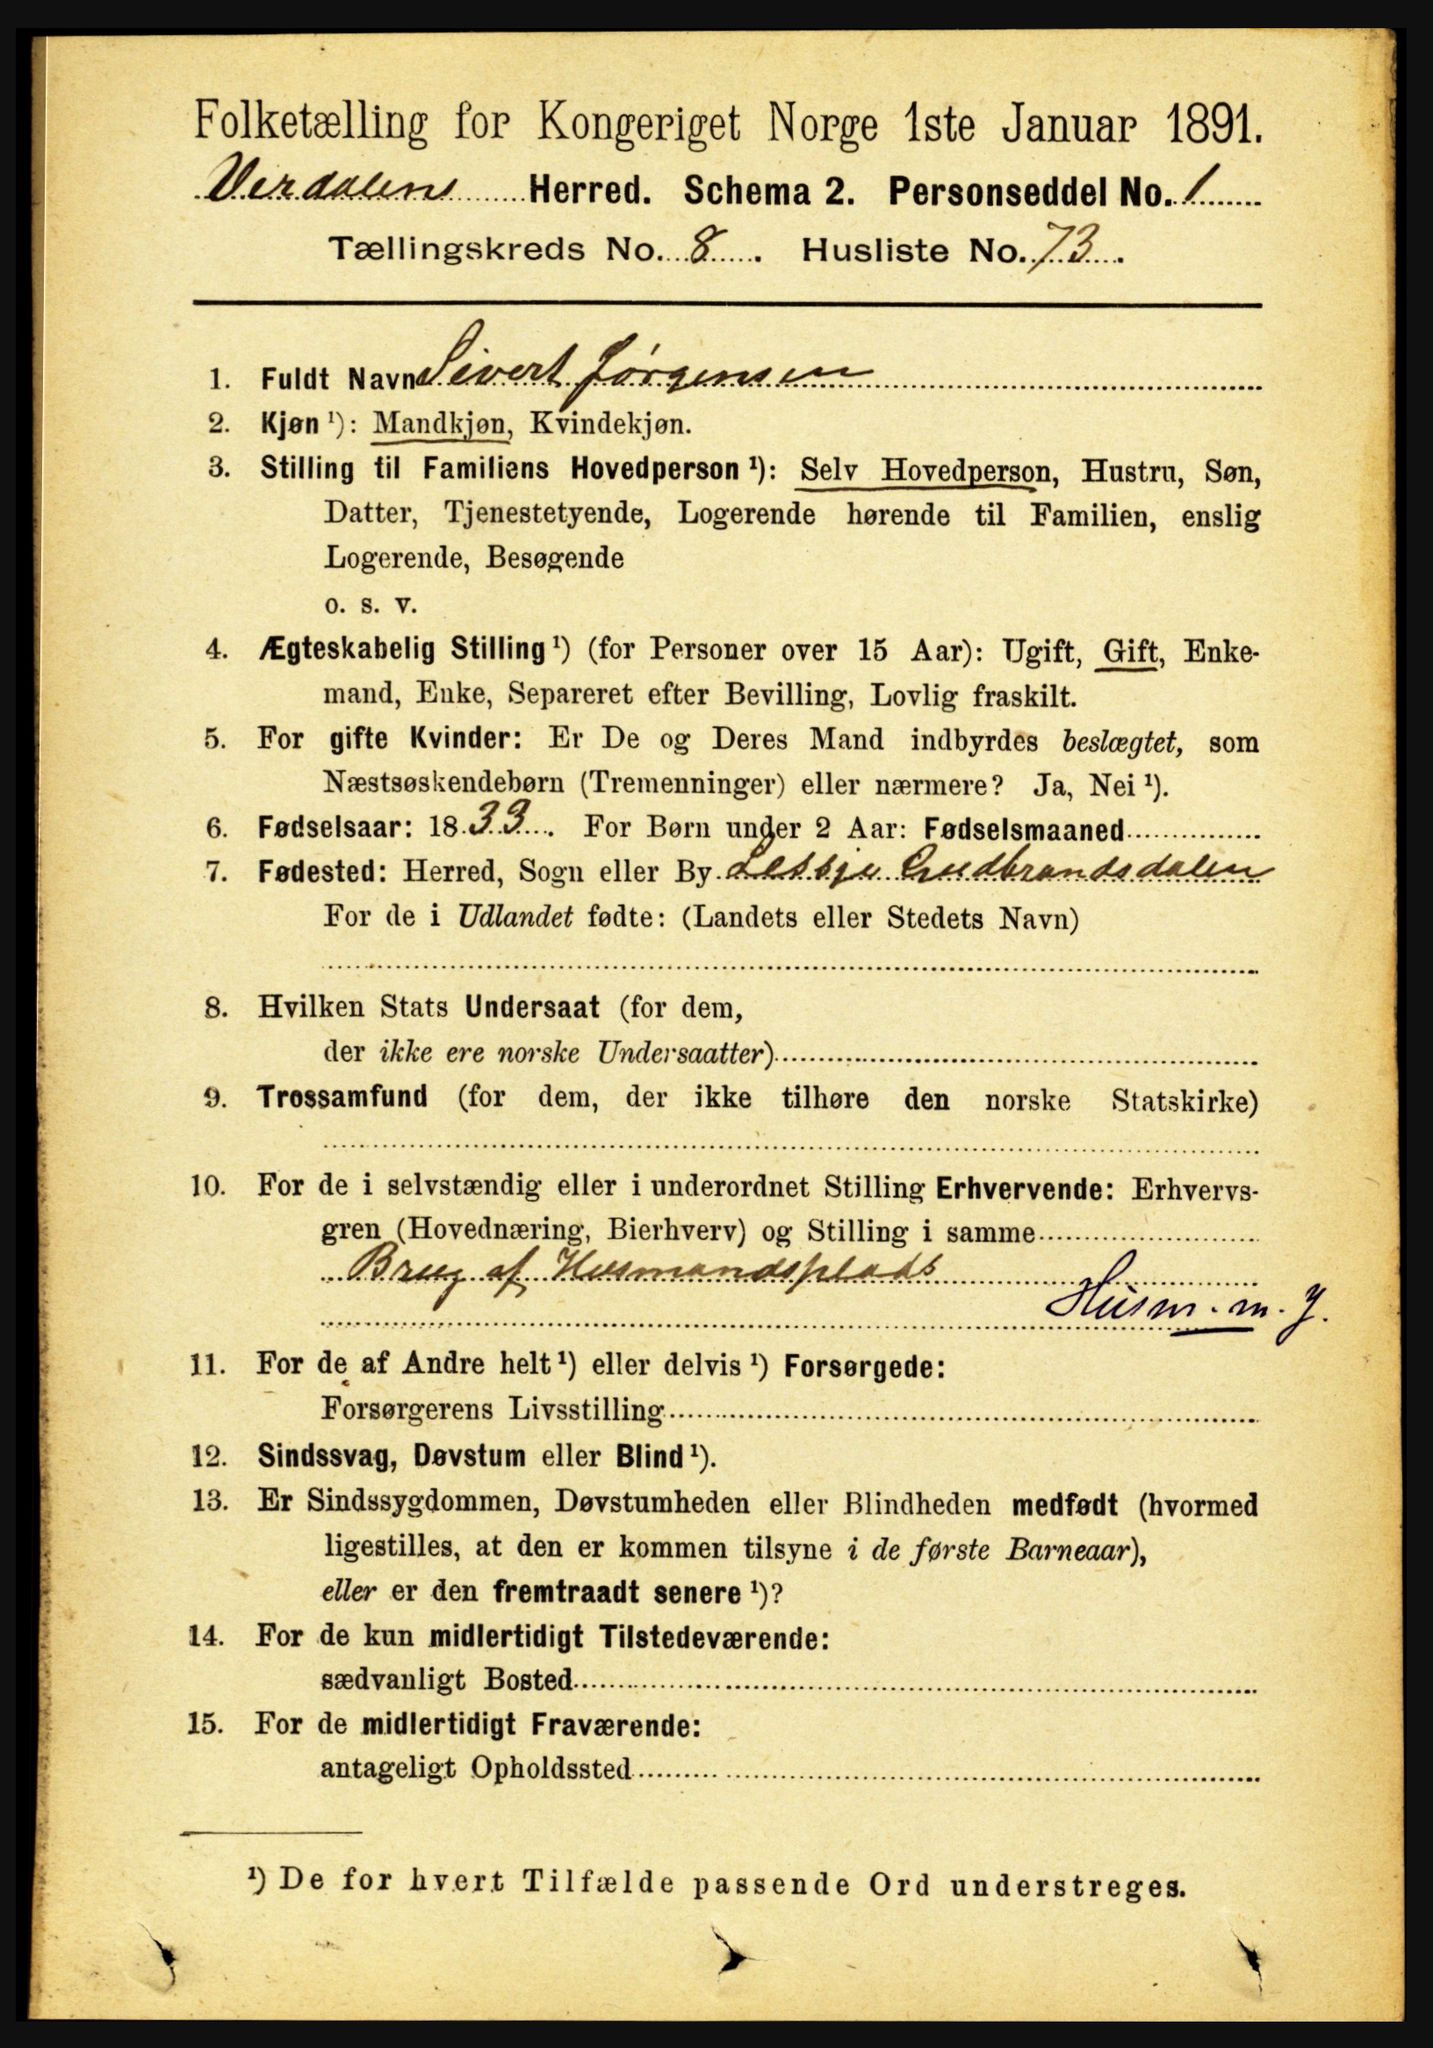 Folketælling for Kongeriget Norge 1ste Januar 1891.
Verdalens Herred. Schema 2. Personseddel No. 1
Tællingskreds No. 8. Husliste No. 73.
1. Fuldt Navn Sivert Jørgensen
2. Kjøn ¹): Mandkjøn, Kvindekjøn.
3. Stilling til Familiens Hovedperson ¹): Selv Hovedperson, Hustru, Søn,
Datter, Tjenestetyende, Logerende hørende til Familien, enslig
Logerende, Besøgende
o. s. v.
4. Ægteskabelig Stilling ¹) (for Personer over 15 Aar): Ugift, Gift, Enke-
mand, Enke, Separeret efter Bevilling, Lovlig fraskilt.
5. For gifte Kvinder: Er De og Deres Mand indbyrdes beslægtet, som
Næstsøskendebørn (Tremenninger) eller nærmere? Ja, Nei ¹).
6. Fødselsaar: 1833. For Børn under 2 Aar: Fødselsmaaned
7. Fødested: Herred, Sogn eller By Lessje Gudbrandsdalen
For de i Udlandet fødte: (Landets eller Stedets Navn)
8. Hvilken Stats Undersaat (for dem,
der ikke ere norske Undersaatter)
9. Trossamfund (for dem, der ikke tilhøre den norske Statskirke)
10. For de i selvstændig eller i underordnet Stilling Erhvervende: Erhvervs-
gren (Hovednæring, Bierhverv) og Stilling i samme
Brug af Husmandsplads
Husm. m. J.
11. For de af Andre helt ¹) eller delvis ¹) Forsørgede:
Forsørgerens Livsstilling
12. Sindssvag, Døvstum eller Blind ¹).
13. Er Sindssygdommen, Døvstumheden eller Blindheden medfødt (hvormed
ligestilles, at den er kommen tilsyne i de første Barneaar),
eller er den fremtraadt senere ¹)?
14. For de kun midlertidigt Tilstedeværende:
sædvanligt Bosted
15. For de midlertidigt Fraværende:
antageligt Opholdssted
¹) De for hvert Tilfælde passende Ord understreges.